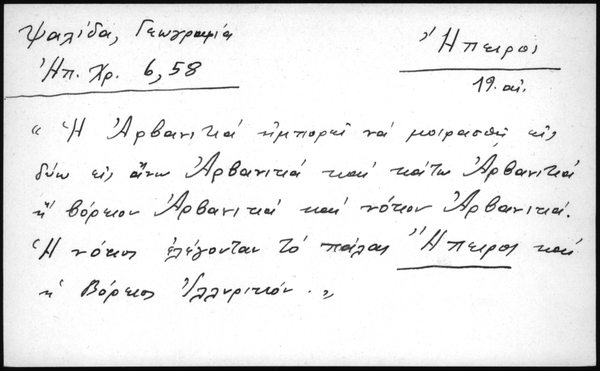 Ψαλίδα, Γεωγραφία
Ἠπ. Χρ. 6, 58
Ἤπειρος
19. αἰ.
" Ἡ Ἀρβανιτιά ἠμπορεῖ νά μοιρασθῇ εἰς
δύω εἰς ἄνω Ἀρβανιτιά καί κάτω Ἀρβανιτιά
ἤ βόρειον Ἀρβανιτιά καί νότιον Ἀρβανιτιά.
Ἡ νότιος ἐλέγονταν τό πάλαι Ἤπειρος καί
ἡ Βόρειος Ἰλλυρικόν. "